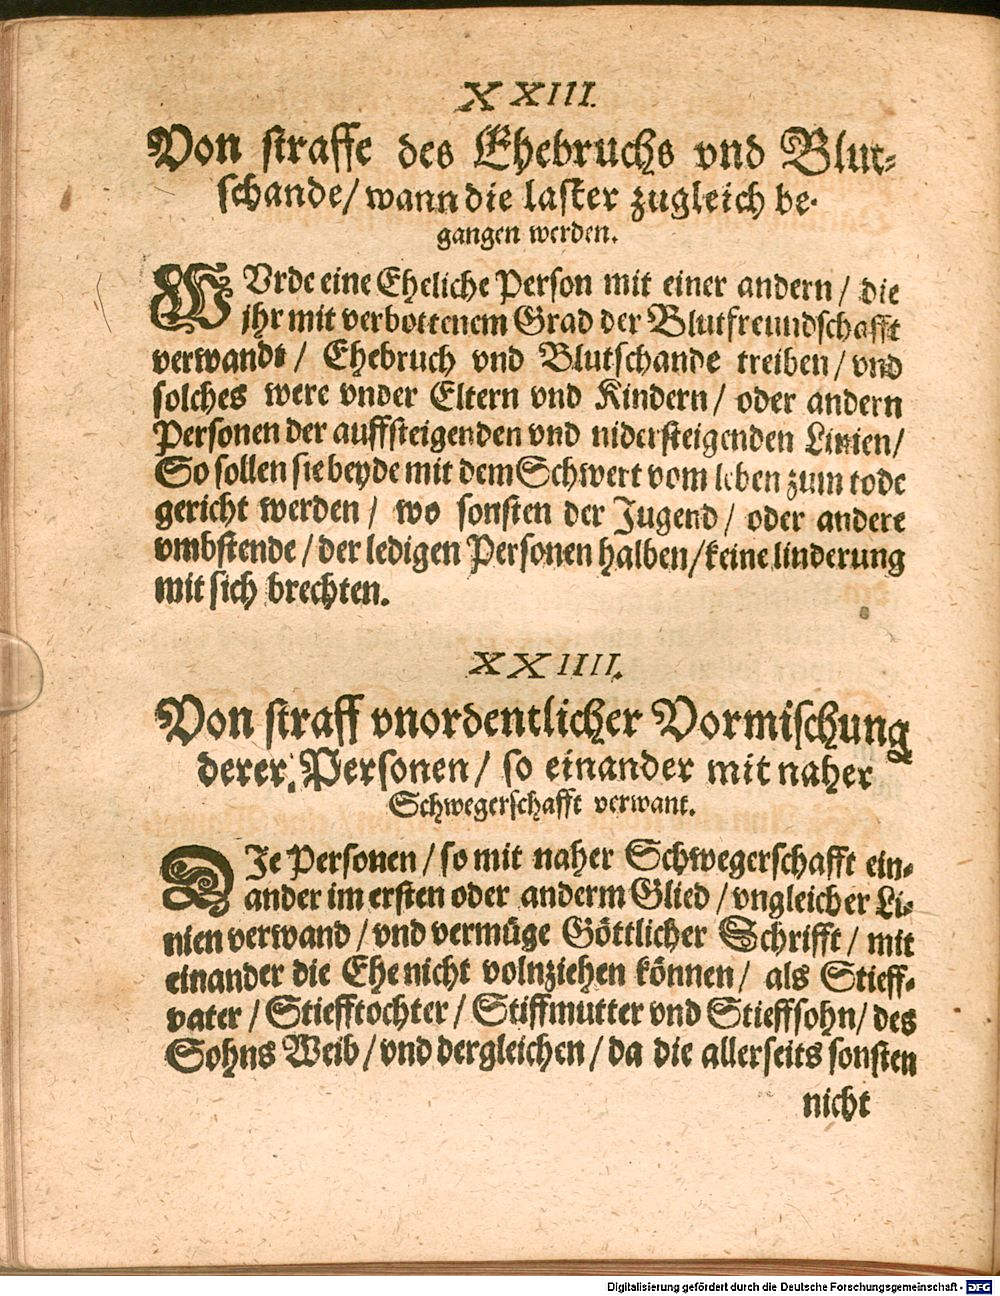 XXIII.
Von straffe des Ehebruchs vnd Blut-
schande/ wann die laster zugleich be-
gangen werden.
WVrde eine Eheliche Person mit einer andern / die
jhr mit verbottenem Grad der Blutfreundschafft
verwandt / Ehebruch vnd Blutschande treiben / vnd
solches were vnder Eltern vnd Kindern / oder andern
Personen der auffsteigenden vnd nidersteigenden Linien/
So sollen sie beyde mit dem Schwert vom leben zum tode
gericht werden / wo sonsten der Jugend / oder andere
vmbstende / der ledigen Personen halben / keine linderung
mit sich brechten.
XXIIII.
Von straff vnordentlicher Vormischung
derer Personen / so einander mit naher
Schwegerschafft verwant.
DJe Personen / so mit naher Schwegerschafft ein-
ander im ersten oder anderm Glied / vngleicher Li-
nien verwand / vnd vermüge Göttlicher Schrifft / mit
einander die Ehe nicht volnziehen können / als Stieff-
vater / Stiefftochter / Stiffmutter vnd Stieffsohn / des
Sohns Weib / vnd dergleichen / da die allerseits sonsten
nicht
Digitalisierung gefördert durch die Deutsche Forschungsgemeinschaft - DFG